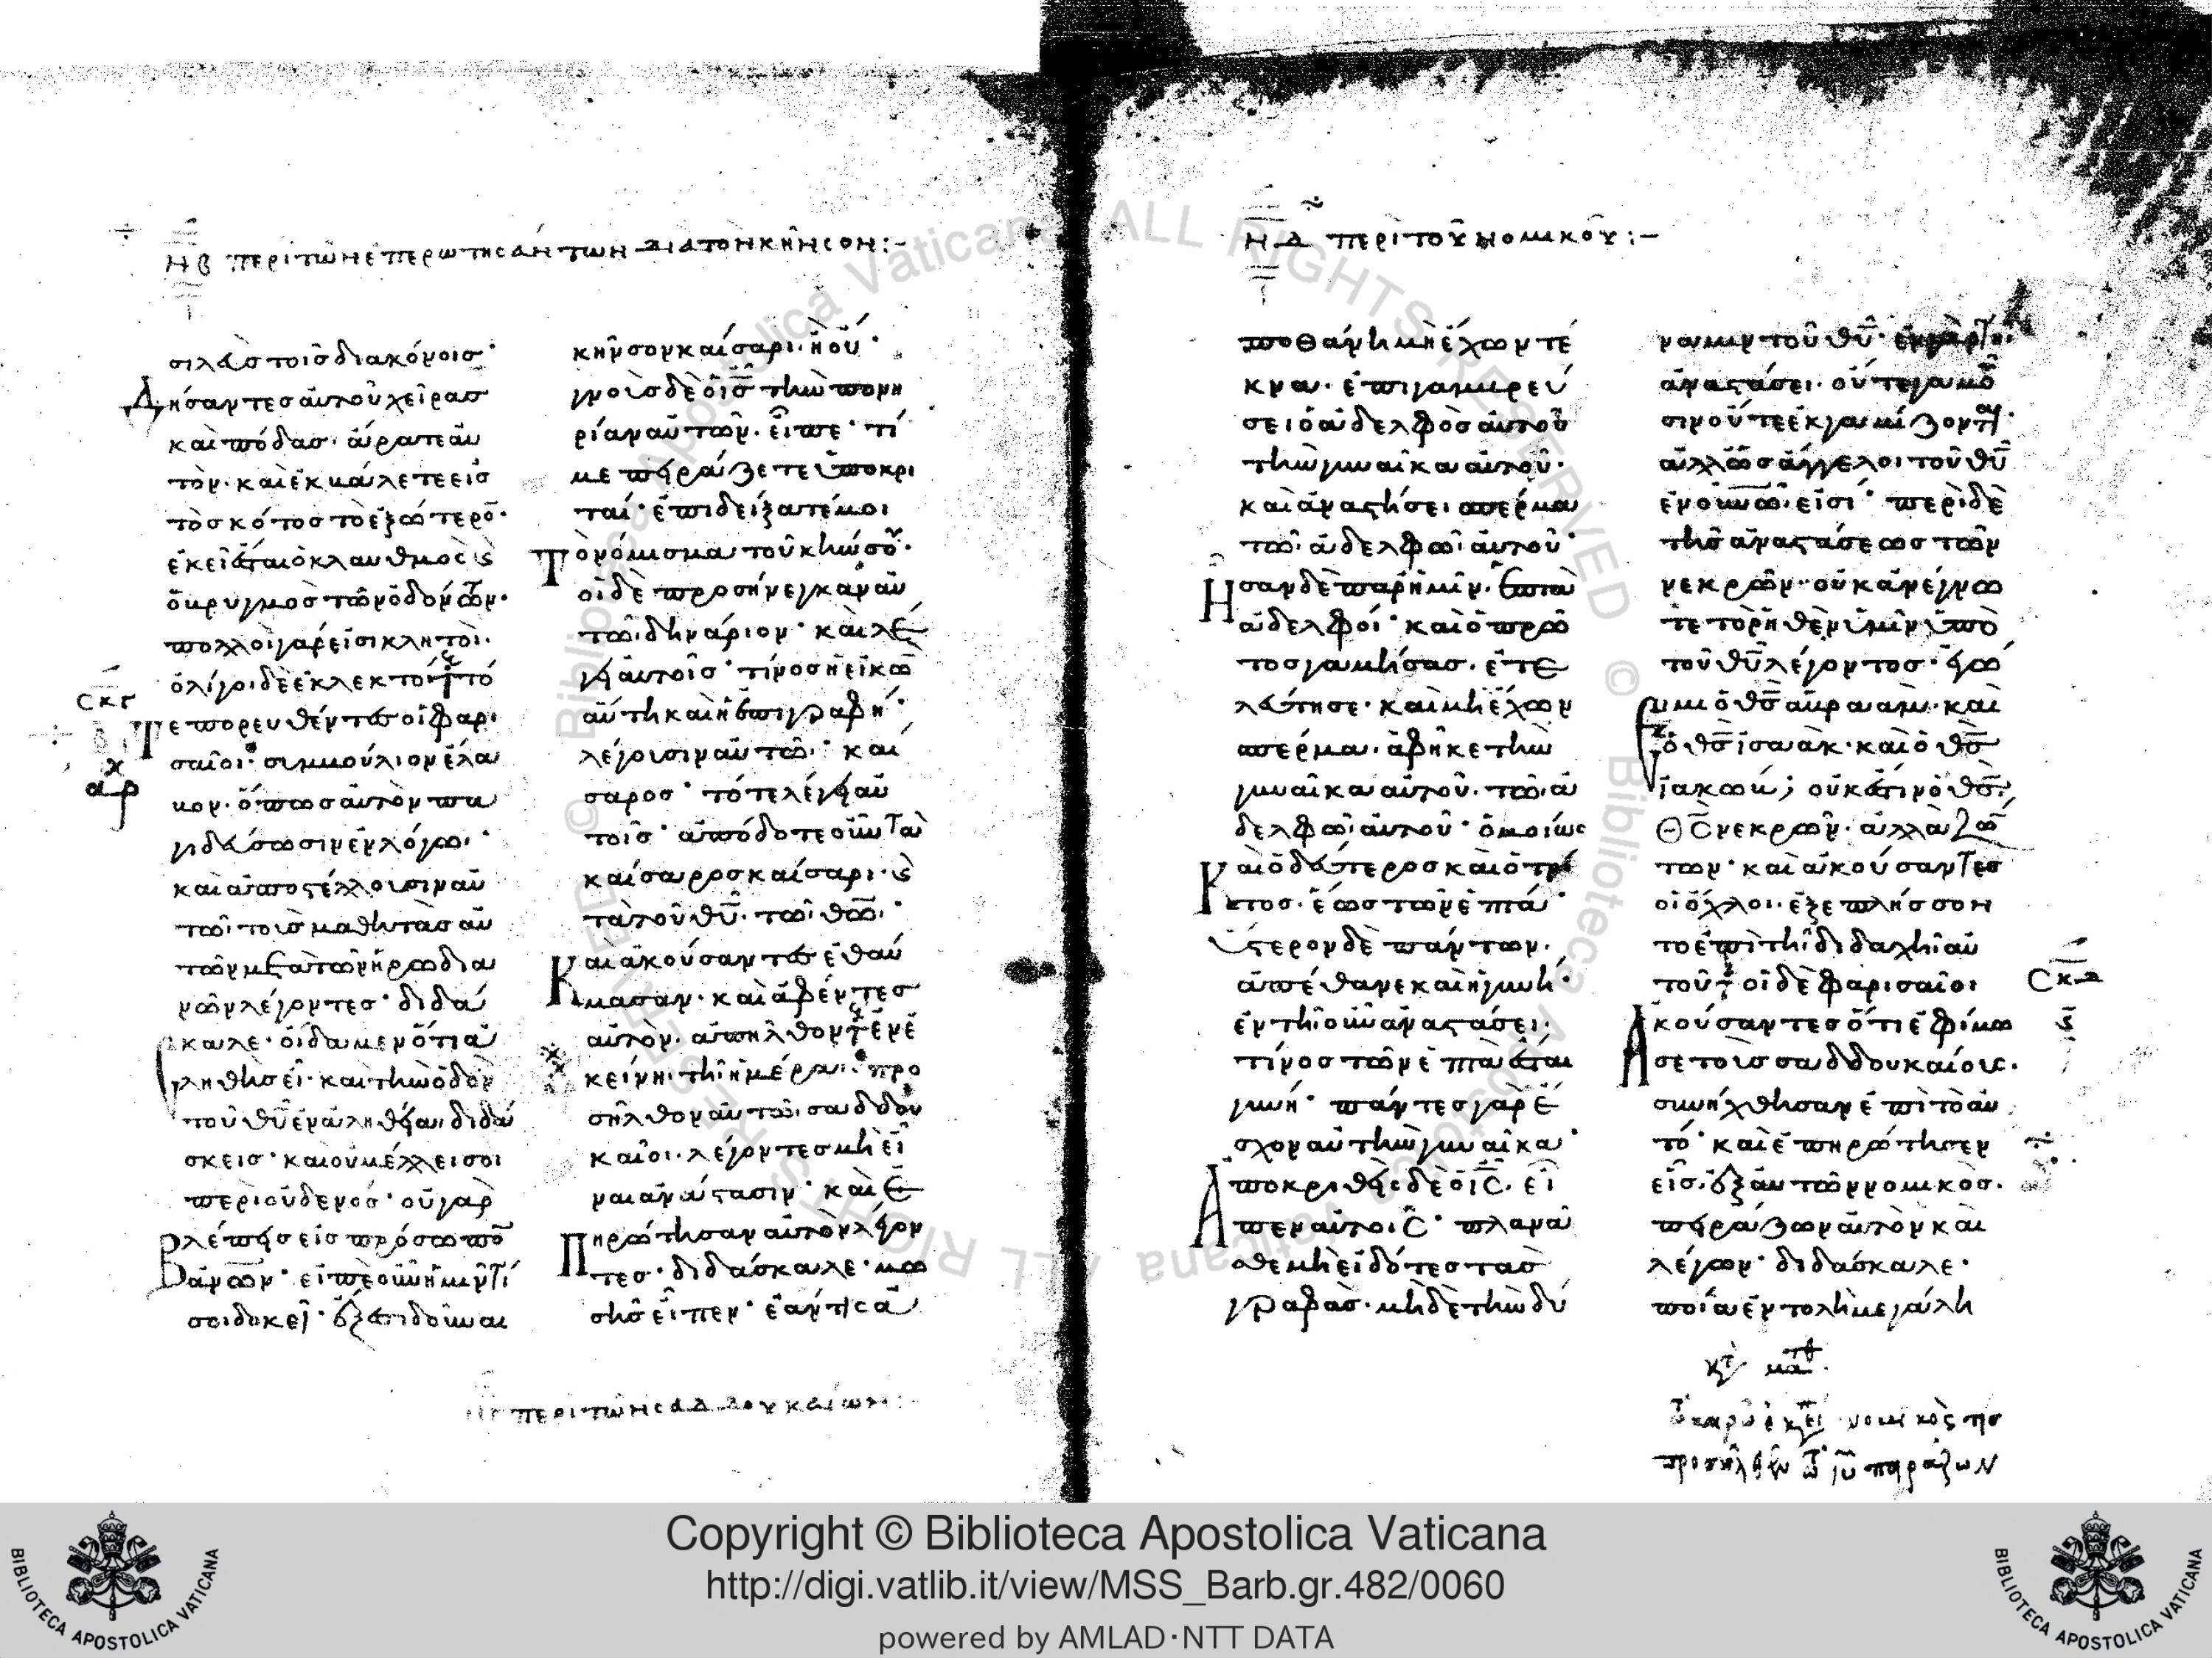 ΠΕΡΙ ΤΩΝ ΕΠΕΡΩΤΗΣΑΝΤΩΝ ΔΙΑ ΤΟΝ ΚΗΝΣΟΝ:-
σιλεὺς τοῖς διακόνοις·
Δήσαντες αὐτοῦ χεῖρας
καὶ πόδας· ἄρατε αὐ
τὸν· καὶ ἐκβάλετε εἰς
τὸ σκότος τὸ ἐξώτερο̄·
ἐκεῖ ἔσται ὁ κλαυθμὸς ϗ
ὁ βρυγμὸς τῶν ὀδόντων·
πολλοὶ γάρ εἰσι κλητοὶ·
ὀλίγοι δὲ ἐκλεκτοί τό
σκγ
Τε πορευθέντες οἱ φαρι
σαῖοι· συμβούλιον ἔλα
βον· ὅπως αὐτὸν πα
γιδεύσωσιν ἐν λόγωι·
καὶ ἀποστέλλουσιν αὐ
τῶι τοὺς μαθητὰς αὐ
τῶν μετὰ τῶν ἡρωδια
νῶν λέγοντες· διδά
σκαλε· οἴδαμεν ὅτι ἀ
ληθὴς εἶ· καὶ τὴν ὁδὸν
τοῦ θῦ ἐν ἀληθείαι διδά
σκεις· καὶ οὐ μέλλει σοι
περὶ οὐδενός· οὐ γὰρ
Βλέπεις εἰς πρόσωπο̄
ἀνῶν· εἰπὲ οὖν ἡμῖν τί
σοι δοκεῖ· ἔξεστι δοῦναι
κῆνσον καίσαρι· ἢ οὔ·
γνοὺς δὲ ὁ ις τὴν πονη
ρίαν αὐτῶν· εἶπε· τί
με πειράζετε ὑποκρι
ταί· ἐπιδείξατέ μοι
Τὸ νόμισμα τοῦ κήνσου·
οἱ δὲ προσήνεγκαν αὐ
τῶι δηνάριον· καὶ λέ
γει αὐτοῖς· τίνος ἡ εἰκὼ
αὕτη καὶ ἡ ἐπιγραφή·
λέγουσιν αὐτῶι· καί
σαρος· τότε λέγει αὐ
τοῖς· ἀπόδοτε οὖν τὰ
καίσαρος καίσαρι· ϗ
τὰ τοῦ θῦ· τῶι θῶι·
Καὶ ἀκούσαντες ἐθαύ
μασαν· καὶ ἀφέντες
αὐτὸν· ἀπῆλθον ἐν ἐ
κείνη τῆ ἡμέραι· προ
σῆλθον αὐτῶι σαδδου
καῖοι· λέγοντες μὴ εἶ
ναι ἀνάστασιν· καὶ ἐ
Πηρώτησαν αὐτὸν λέγον
τες· διδάσκαλε· μω
σῆς εἶπεν· ἐάν τις ἀ
ΠΕΡΙ ΤΩΝ ΣΑΔΔΟΥΚΑΙΩΝ:
ΠΕΡΙ ΤΟΥ ΝΟΜΙΚΟΥ:-
ποθάνη μὴ ἔχων τέ
κνα· ἐπιγαμβρεύ
σει ὁ ἀδελφὸς αὐτοῦ
τὴν γυναῖκα αὐτοῦ·
καὶ ἀναστήσει σπέρμα
τῶι ἀδελφῶι αὐτοῦ·
Ησαν δὲ παρ' ἡμῖν· ἑπτὰ
ἀδελφοί· καὶ ὁ πρῶ
τος γαμήσας· ἐτε
λεύτησε· καὶ μὴ ἔχων
σπέρμα· ἀφῆκε τὴν
γυναῖκα αὐτοῦ· τῶι ἀ
δελφῶι αὐτοῦ· ὁμοίως
Καὶ ὁ δεύτερος καὶ ὁ τρί
τος· ἕως τῶν ἑπτά·
ὕστερον δὲ πάντων·
ἀπέθανε καὶ ἡ γυνή·
ἐν τῆ οὖν ἀναστάσει·
τίνος τῶν ἑπτὰ ἔσται
γυνή· πάντες γὰρ ἔ
σχον αὐτὴν γυναῖκα·
Ἀποκριθεὶς δὲ ὁ ις· εἶ
πεν αὐτοῖς· πλανᾶ
σθε μὴ εἰδότες τὰς
γραφὰς· μὴδὲ τὴν δύ
ναμιν τοῦ θῦ· ἐν γὰρ τῆ
ἀναστάσει· οὔτε γαμοῦ
σιν οὔτε ἐκγαμίζονται·
ἀλλ' ὡς ἄγγελοι τοῦ θῦ
ἐν οὐνῶι εἰσί· περὶ δὲ
τῆς ἀναστάσεως τῶν
νεκρῶν· οὐκ ἀνέγνω
τε τὸ ῥηθὲν ὑμῖν ὑπὸ
τοῦ θῦ λέγοντος· ἐγώ
εἰμι ὁ θς ἀβραὰμ· καὶ
ὁ θς ἰσαὰκ· καὶ ὁ θς
ἰακώβ; οὐκ ἔστιν ὁ θς·
θς νεκρῶν· ἀλλὰ ζώ
των· καὶ ἀκούσαντες
οἱ ὄχλοι· ἐξεπλήσσον
το ἐπὶ τῆ διδαχῆ αὐ
τοῦ οἱ δὲ φαρισαῖοι
σκδ
Ἀκούσαντες ὅτι ἐφίμω
σε τοὺς σαδδουκαίους·
συνήχθησαν ἐπὶ τὸ αὐ
τό· καὶ ἐπηρώτησεν
εἷς· ἐξ αὐτῶν νομικὸς·
πειράζων αὐτὸν καὶ
λέγων· διδάσκαλε·
ποία ἐντολὴ μεγάλη
νομικός τις
προσῆλθεν πειράζων